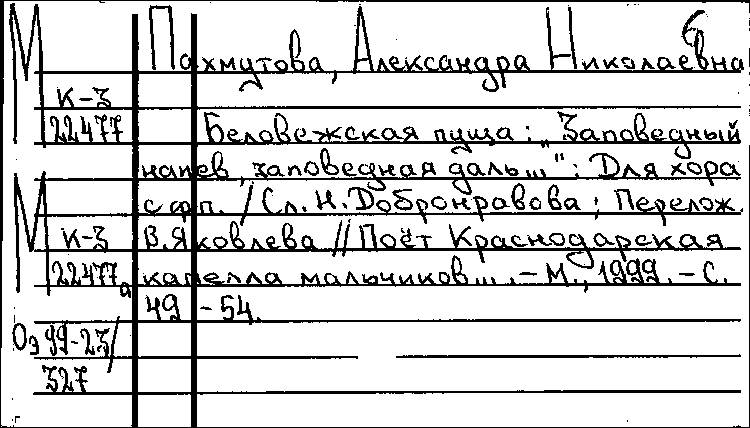 6
М Пахмутова, Александра Николаевна
К-3
22477 Беловежская пуща: „Заповедный
напев, заповедная даль...": Для хора
М с фп. / Сл. Н. Добронравова; Перелож.
К-3 В. Яковлева // Поёт Краснодарская
22477а капелла мальчиков... .- М., 1999. - С.
49 - 54.
Оэ 99-23/
327